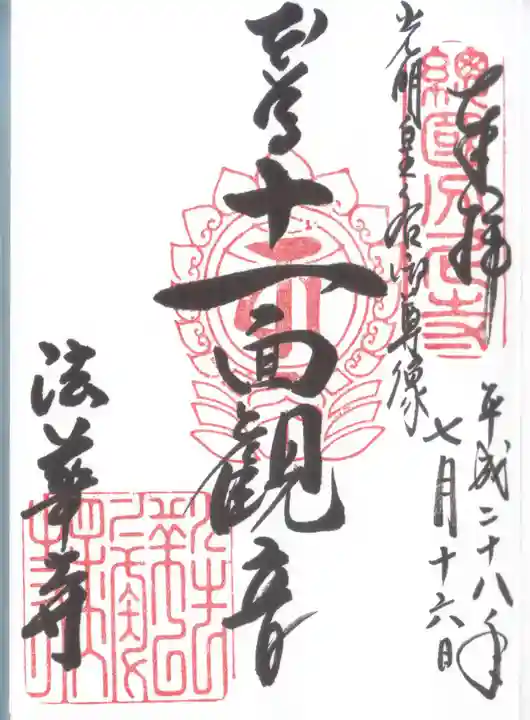 奉拝
平成二十八年
七月十六日
光明皇后御尊像
本尊十一面観音
法華寺